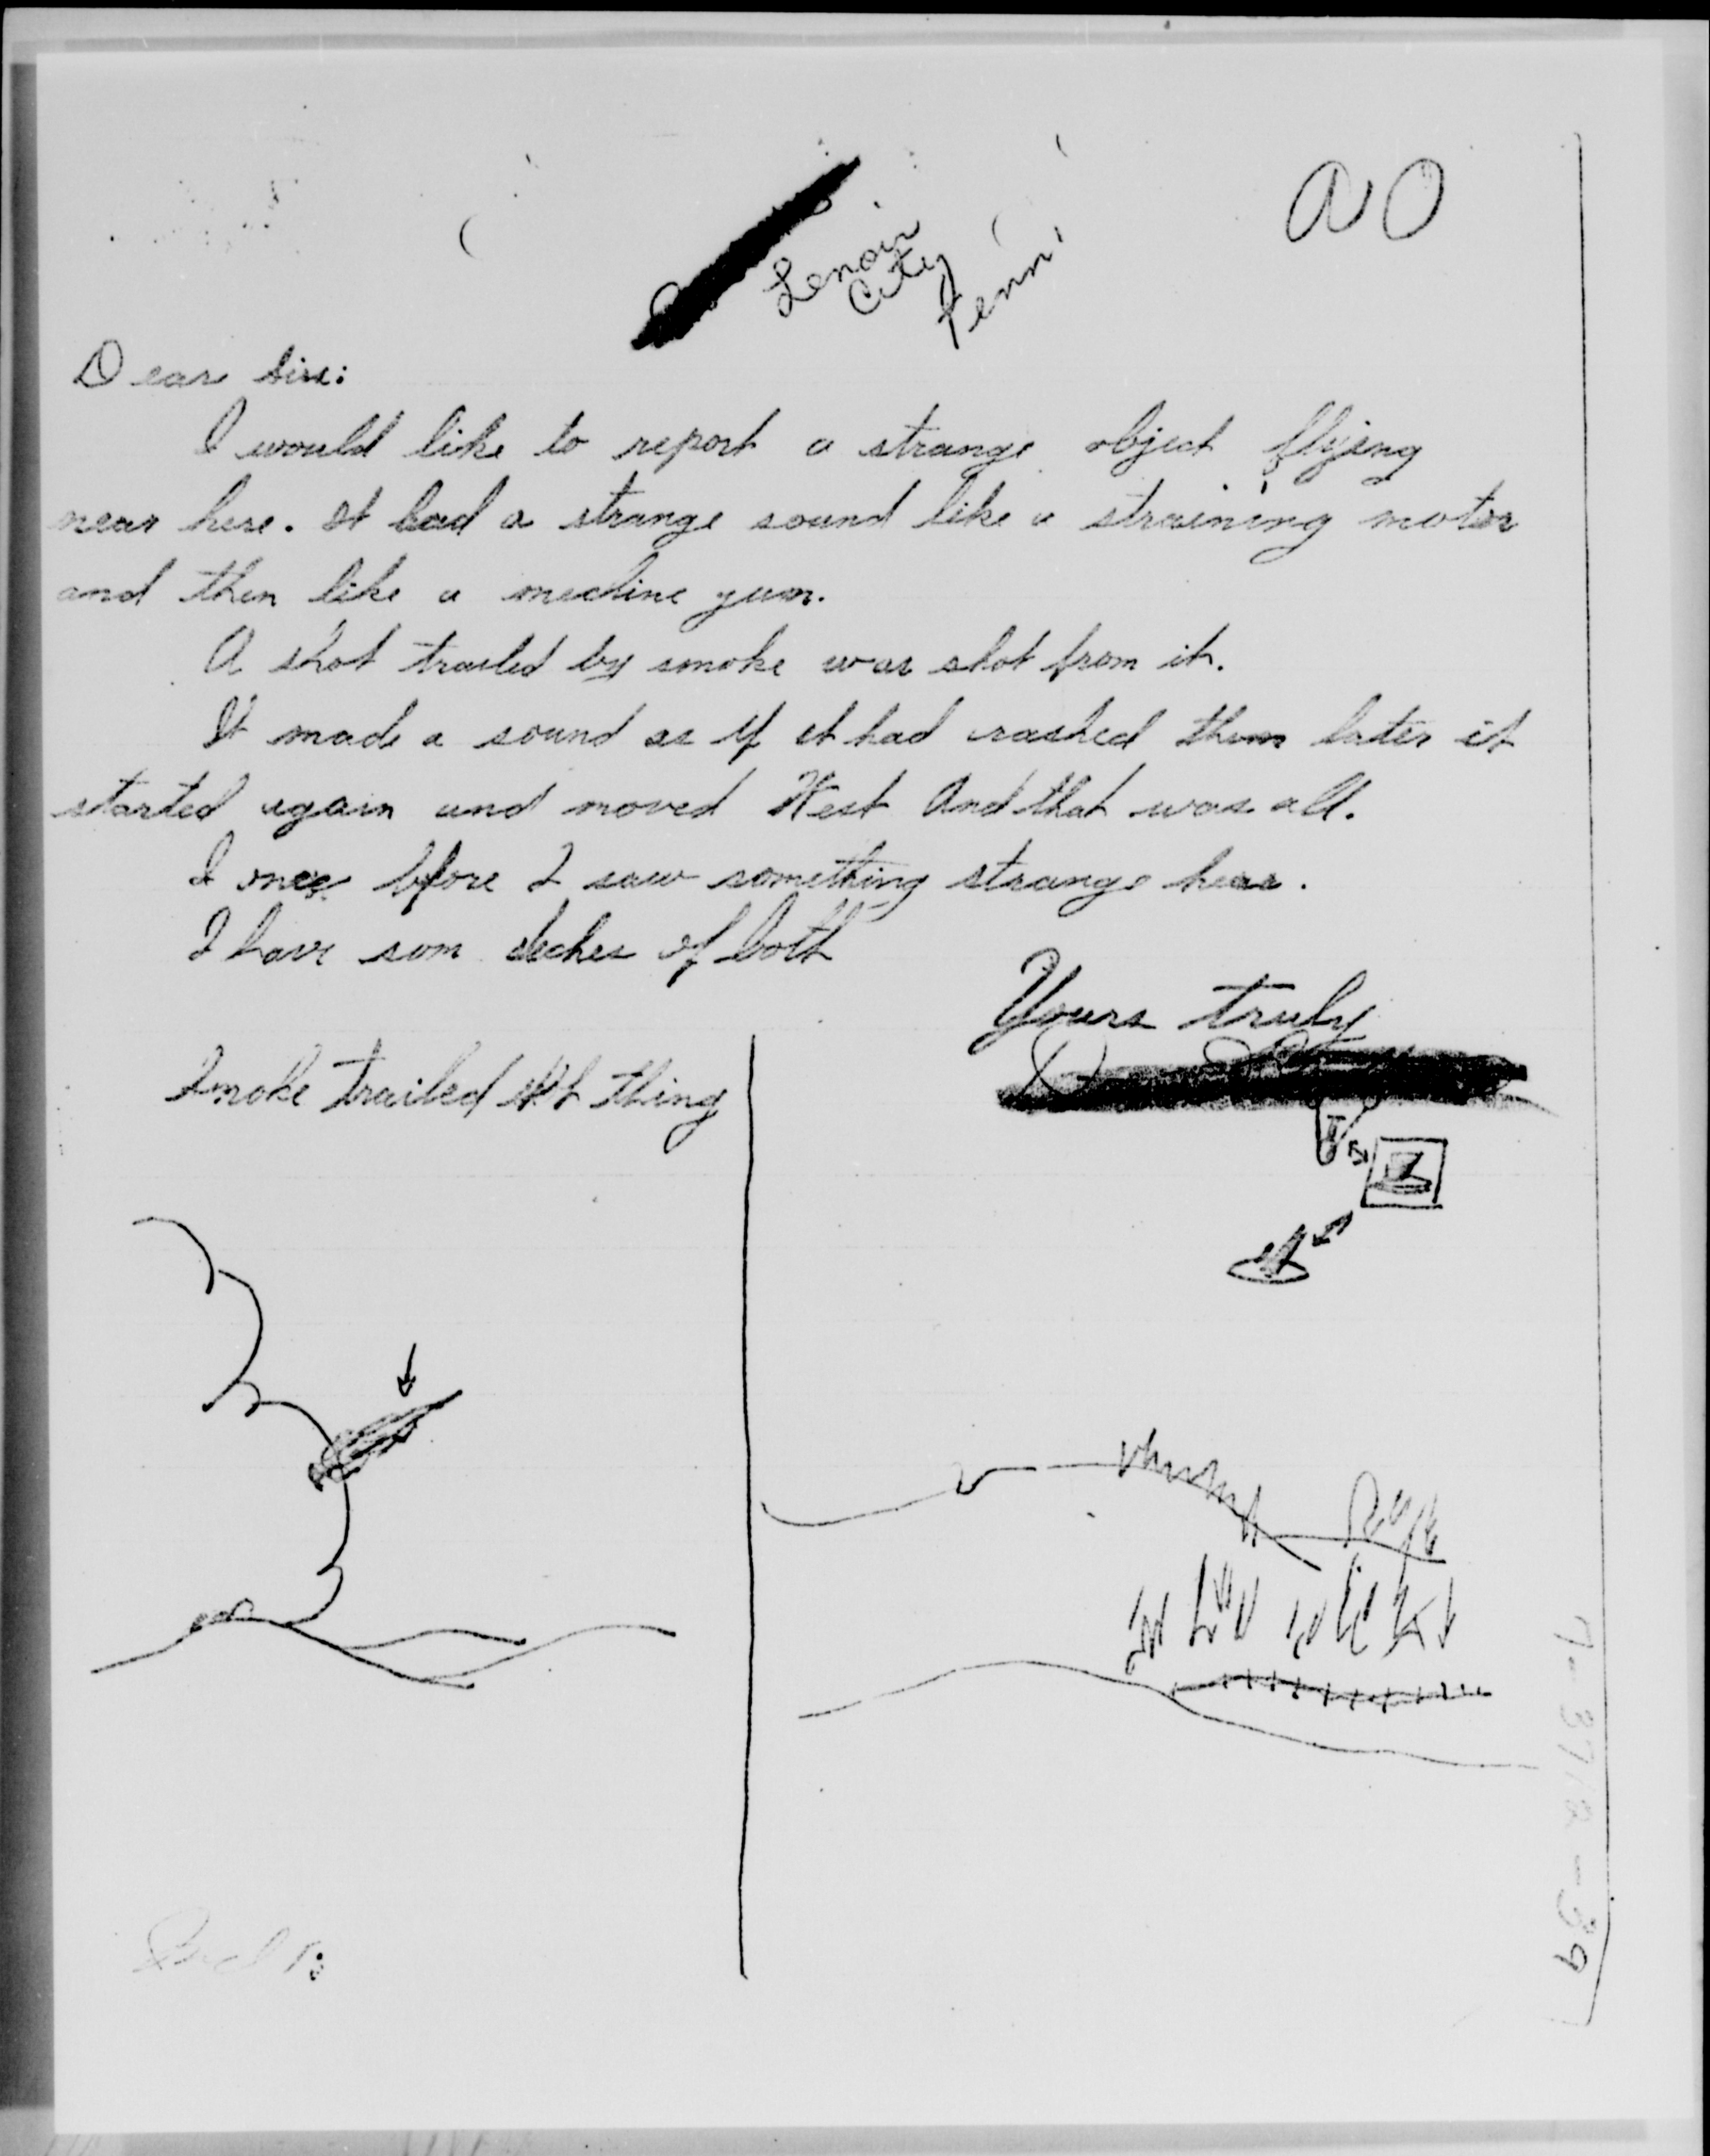 Lenoir
City
Tenn
Dear Sir:
I would like to report a strange object flying
near here. It had a strange sound like a straining motor
and then like a mechine gun.
A shot trailed by smoke was shot from it.
It made a sound as if it had crashed then later it
started again and moved West And that was all.
I once bfore I saw something strange hear.
I have som of both
Yours truly
Smoke trailed thing